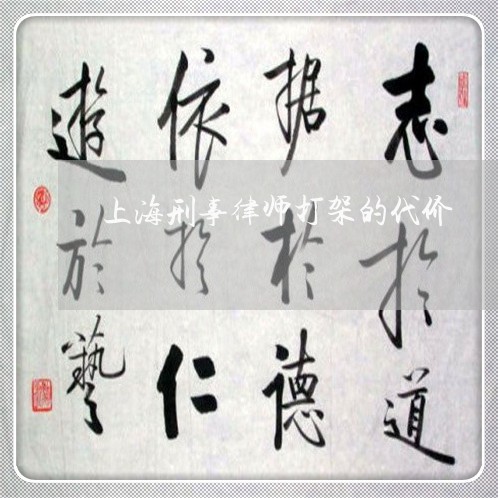 志於道
据於德
依於仁
遊於藝
上海刑事律师打架的代价